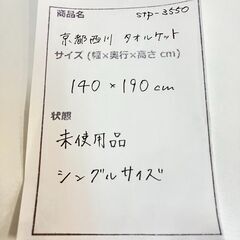 商品名 stp-3550
京都西川 タオルケット
サイズ (幅×奥行×高さ cm)
140 × 190 cm
状態
未使用品
シングルサイズ